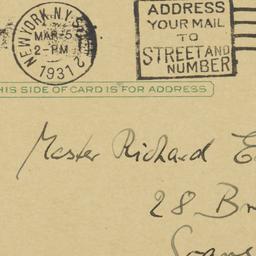 NEW YORK, N.Y. STA
MAR-5
2-PM
1931
ADDRESS
YOUR MAIL
TO
STREET AND
NUMBER
THIS SIDE OF CARD IS FOR ADDRESS
Master Richard E
28 Br